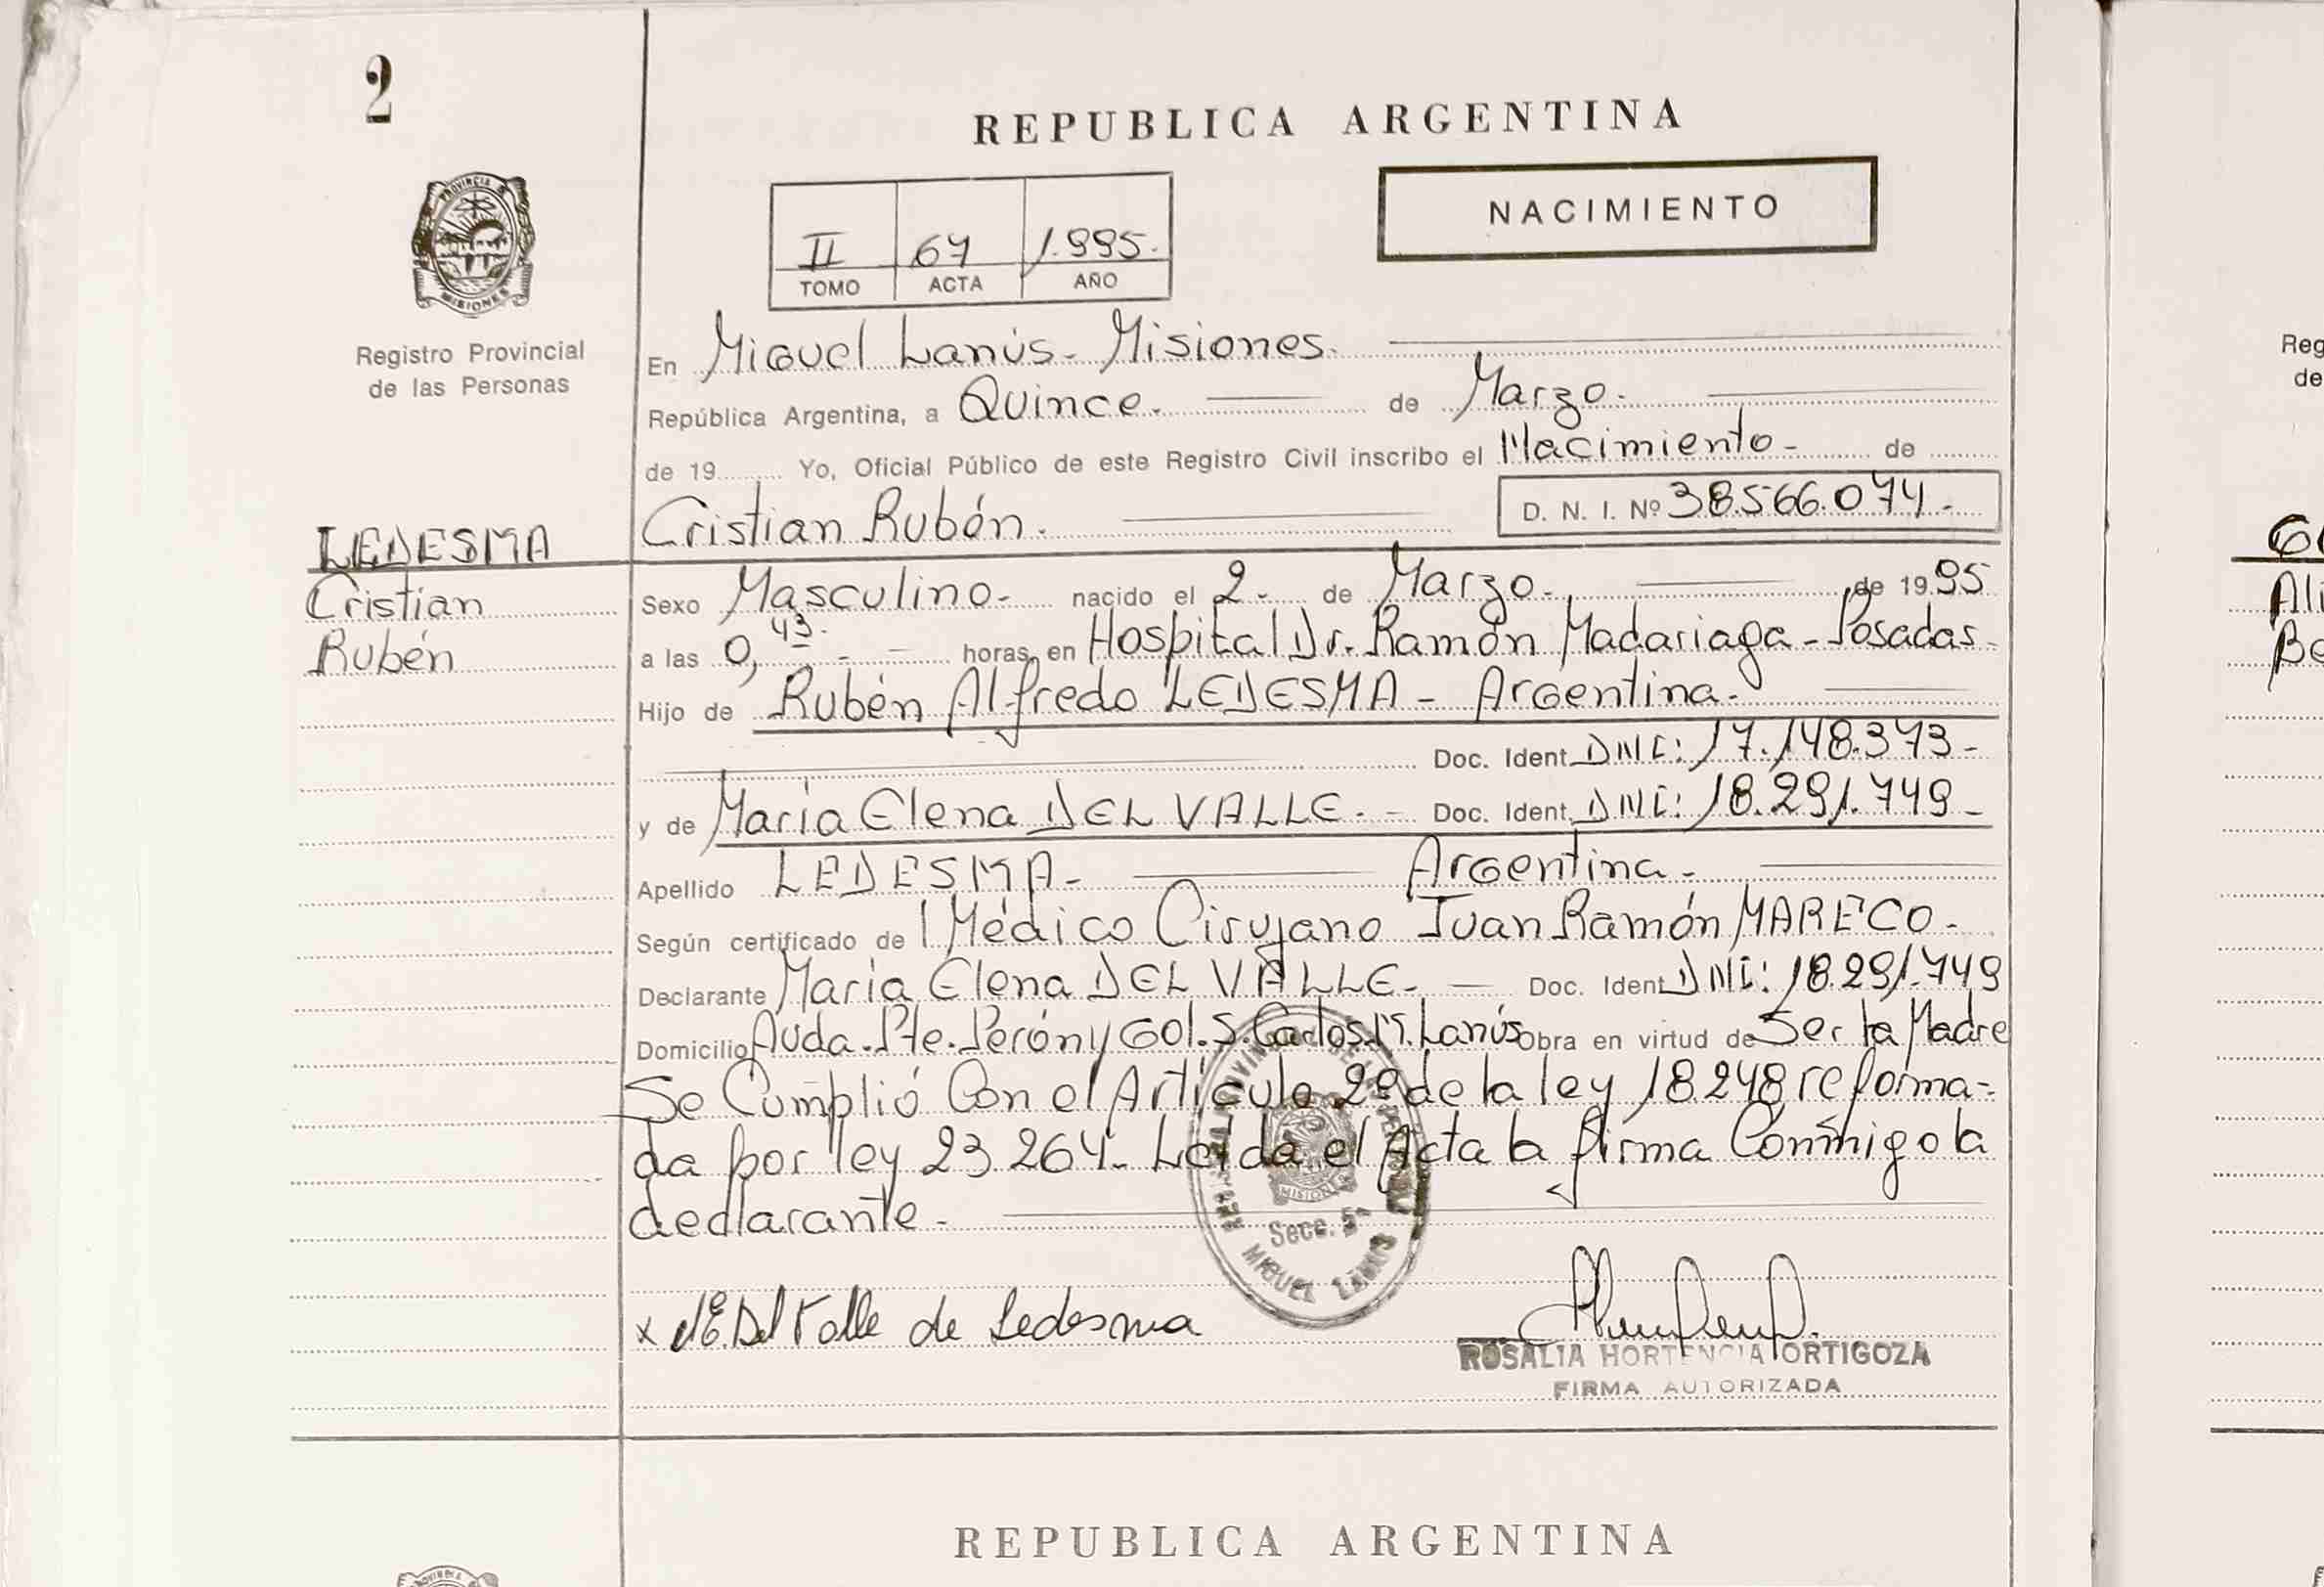 2
REPUBLICA ARGENTINA
PROVINCIA DE
MISIONES
NACIMIENTO
II 67 1.995.
TOMO ACTA AÑO
Registro Provincial
de las Personas
En Miguel Lanús - Misiones.
República Argentina, a Quince. de Marzo.
de 19 Yo, Oficial Público de este Registro Civil inscribo el Nacimiento - de
Cristian Rubén. D. N. I. Nº 38.566.074.-
LEDESMA
Cristian
Rubén
Sexo Masculino - nacido el 2. de Marzo. de 1995
a las 0,43. - - horas, en Hospital Dr. Ramón Madariaga - Posadas -
Hijo de Rubén Alfredo LEDESMA - Argentina.
Doc. Ident. DNI: 17.148.373 -
y de María Elena DEL VALLE. - Doc. Ident. DNI: 18.291.749 -
Apellido LEDESMA - Argentina.
Según certificado de l Médico Cirujano Juan Ramón MARECO.
Declarante María Elena DEL VALLE. - Doc. Ident DNI: 18.291.749
Domicilio Avda. Pte. Perón y Col. S. Carlos M. Lanús Obra en virtud de Ser la Madre
Se Cumplió Con el Artículo 2º de la ley 18.248 reforma-
da por ley 23.264. Leída el Acta la firma Conmigo la
declarante.
Secc. 5ª
MIGUEL LANUS
x M E. Del Valle de Ledesma
ROSALIA HORTENCIA ORTIGOZA
FIRMA AUTORIZADA
REPUBLICA ARGENTINA
Reg
de
Ali
Be